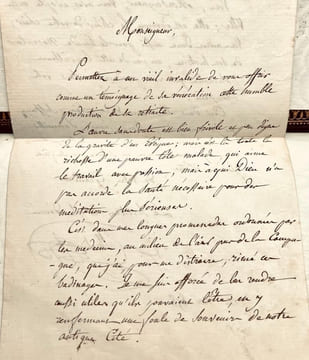 Monseigneur,
Permettez à un vieil invalide de vous offrir
comme un témoignage de sa vénération cette humble
production de sa retraite.
L'œuvre sans doute est bien frivole et peu digne
de la gravité d'un Évêque; mais est là toute la
richesse d'une pauvre tête malade, qui aime
le travail avec passion, mais à qui Dieu n'a
pas accordé la santé nécessaire pour des
méditations plus sérieuses.
C'est dans une longue promenade ordonnée par
les médecins, au milieu de l'air pur de la Campa-
gne, que j'ai pour me distraire, rimé ce
badinage. Je me suis efforcé de les rendre
aussi utiles qu'ils pouvaient l'être, en y
renfermant une foule de souvenirs de notre
antique Cité.